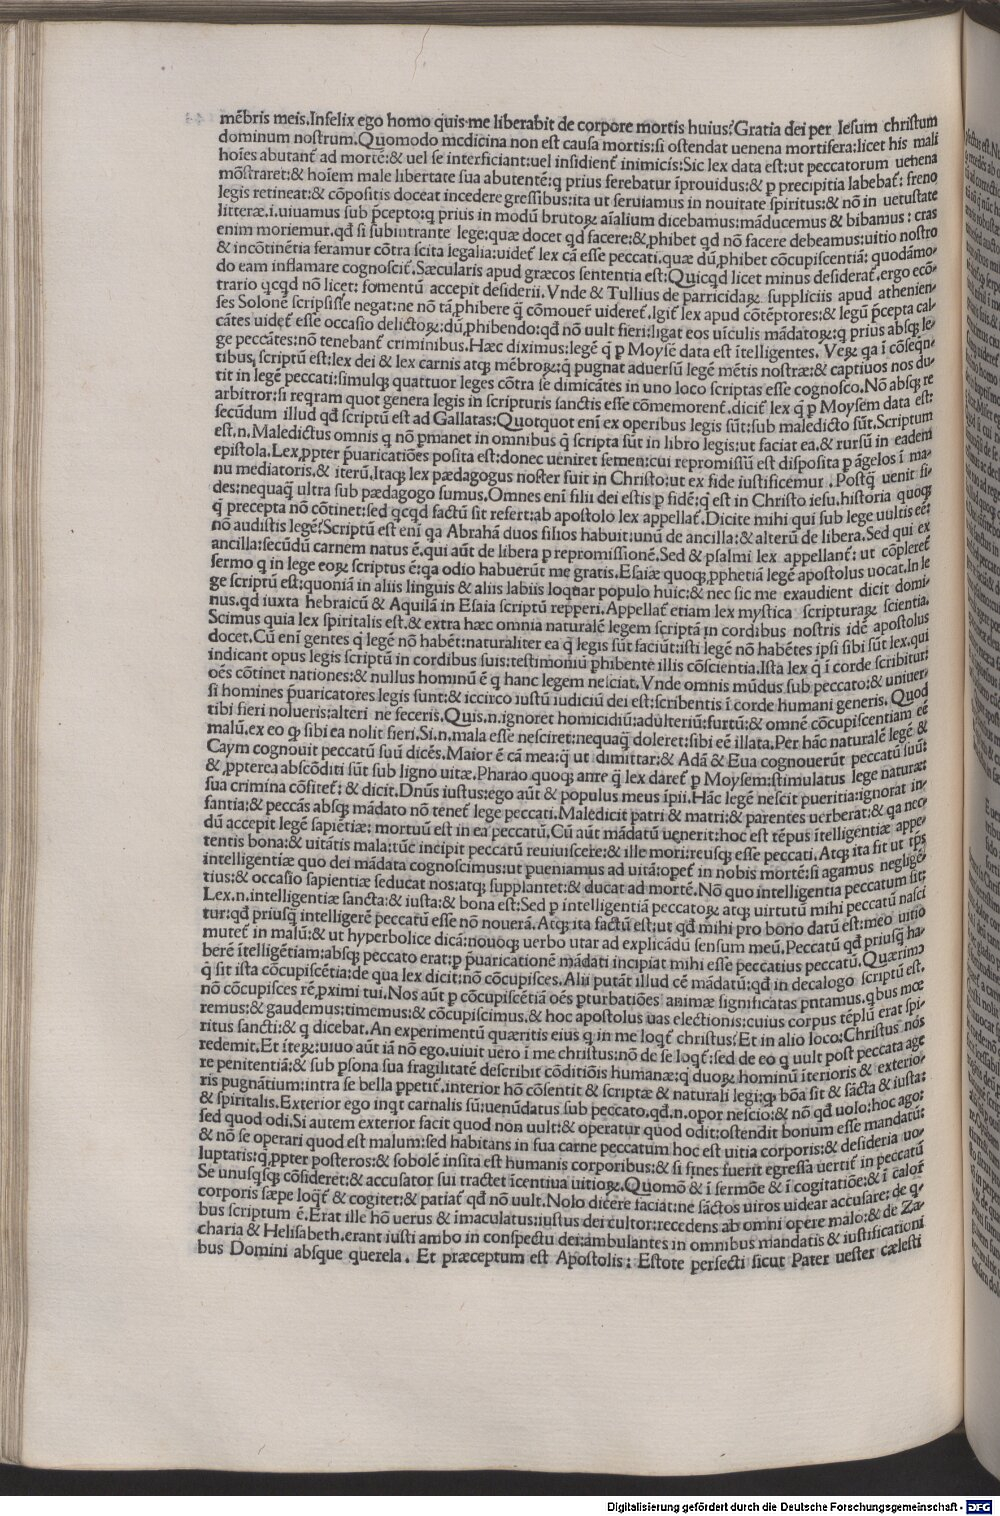 mēbris meis.Infelix ego homo quis me liberabit de corpore mortis huius?Gratia dei per Iesum christum
dominum nostrum.Quomodo medicina non est causa mortis:si ostendat uenena mortifera:licet his mali
hoīes abutant᷑ ad mortē:& uel se interficiant:uel insidient᷑ inimicis:Sic lex data est:ut peccatorum uenena
mōstraret:& hoīem male libertate sua abutentē:q prius ferebatur īprouidus:& p precipitia labebat᷑: freno
legis retineat:& cōpositis doceat incedere gressibus:ita ut seruiamus in nouitate spiritus:& nō in uetustate
litteræ.i.uiuamus sub p̄cepto:q prius in modū brutoꝝ aīalium dicebamus:māducemus & bibamus : cras
enim moriemur.qđ si subintrante lege:quæ docet qd facere:&,phibet qd nō facere debeamus:uitio nostro
& incōtinētia feramur cōtra scita legalia:uidet᷑ lex cā esse peccati.quæ dū,phibet cōcupiscentiā: quodāmo-
do eam inflamare cognoscit᷑.Sæcularis apud græcos sententia est:Quicqd licet minus desiderat᷑.ergo ecō-
trario qcqd nō licet: fomentū accepit desiderii.Vnde & Tullius de parricidaꝝ suppliciis apud athenien-
ses Solonē scripsisse negat:ne nō tā,phibere q̄ cōmouer᷑ uideret᷑.Igit᷑ lex apud cōtēptores:& legū p̄cepta cal-
cātes uidet᷑ esse occasio delictoꝝ:dū,phibendo:qđ nō uult fieri:ligat eos uīculis mādatoꝝ:q prius absqꝫ le-
ge peccātes:nō tenebant᷑ criminibus.Hæc diximus:legē q̄ p Moysē data est ītelligentes. Veꝝ qa ī cōseqn̄-
tibus scriptū est:lex dei & lex carnis atqꝫ mēbroꝝ:q̄ pugnat aduersū legē mētis nostræ:& captiuos nos du-
cit in legē peccati:simulqꝫ quattuor leges cōtra se dimicātes in uno loco scriptas esse cognosco.Nō absqꝫ re
arbitror:si reqram quot genera legis in scripturis sanctis esse cōmemorent᷑.dicit᷑ lex q̄ p Moysem data est:
secūdum illud qđ scriptū est ad Gallatas:Quotquot enī ex operibus legis sūt:sub maledicto sūt.Scriptum
est.n.Maledictus omnis q nō p̱manet in omnibus q̄ scripta sūt in libro legis:ut faciat ea.& rursū in eadem
epistola.Lex,ppter p̄uaricatiōes posita est:donec ueniret semen:cui repromissū est disposita p āgelos ī ma-
nu mediatoris.& iterū.Itaqꝫ lex pædagogus noster fuit in Christo:ut ex fide iustificemur . Postq̄ uenit fi-
des:nequaq̄ ultra sub pædagogo sumus.Omnes enī filii dei estis p fidē:q̄ est in Christo iesu.historia quoqꝫ
q̄ precepta nō cōtinet:sed qcqd factū sit refert:ab apostolo lex appellat᷑.Dicite mihi qui sub lege uultis eē:
nō audistis legē?Scriptū est enī qa Abrahā duos filios habuit:unū de ancilla:& alterū de libera.Sed qui ex
ancilla:secūdū carnem natus ē.qui aūt de libera p repromissionē.Sed & psalmi lex appellant᷑: ut cōpleret᷑
sermo q in lege eoꝝ scriptus ē:qa odio habuerūt me gratis.Esaiæ quoqꝫ,pphetiā legē apostolus uocat.In le
ge scriptū est:quoniā in aliis linguis & aliis labiis loquar populo huic:& nec sic me exaudient dicit domi-
nus.qd iuxta hebraicū & Aquilā in Esaia scriptū repperi.Appellat᷑ etiam lex mystica scripturaꝝ scientia.
Scimus quia lex spiritalis est.& extra hæc omnia naturalē legem scriptā in cordibus nostris idē apostolus
docet.Cū enī gentes q̄ legē nō habēt:naturaliter ea q̄ legis sūt faciūt:isti legē nō habētes ipsi sibi sūt lex.qui
indicant opus legis scriptū in cordibus suis:testimoniū phibente illis cōscientia.Ista lex q̄ ī corde scribitur:
oēs cōtinet nationes:& nullus hominū ē q hanc legem nesciat.Vnde omnis mūdus sub peccato:& uniuer-
si homines p̄uaricatores legis sunt:& iccirco iustū iudiciū dei est:scribentis ī corde humani generis. Quod
tibi fieri nolueris:alteri ne feceris.Quis.n.ignoret homicidiū:adulteriū:furtū:& omnē cōcupiscentiam eē
malū.ex eo qꝫ sibi ea nolit fieri.Si.n.mala esse nesciret:nequaq̄ doleret:sibi eē illata.Per hāc naturalē legē &
Caym cognouit peccatū suū dicēs.Maior ē cā mea:q̄ ut dimittar:& Adā & Eua cognouerūt peccatū suū:
&,ppterea abscōditi sūt sub ligno uitæ.Pharao quoqꝫ anre q̄ lex daret᷑ p Moysem:stimulatus lege naturæ:
sua crimina cōfitet᷑: & dicit.Dn̄us iustus:ego aūt & populus meus īpii.Hāc legē nescit pueritia:ignorat in-
fantia:& peccās absqꝫ mādato nō tenet᷑ lege peccati.Maledicit patri & matri:& parentes uerberat:& qa nec-
dū accepit legē sapiētiæ: mortuū est in ea peccatū.Cū aūt mādatū uenerit:hoc est tēpus ītelligentiæ appe-
tentis bona:& uitātis mala:tūc incipit peccatū reuiuiscere:& ille mori:reusqꝫ esse peccati.Atqꝫ ita fit ut tp̄s
intelligentiæ quo dei mādata cognoscimus:ut pueniamus ad uitā:opet᷑ in nobis mortē:si agamus negligē-
tius:& occasio sapientiæ seducat nos:atqꝫ supplantet:& ducat ad mortē.Nō quo intelligentia peccatum sit:
Lex.n.intelligentiæ sancta:& iusta:& bona est:Sed p intelligentiā peccatoꝝ atqꝫ uirtutū mihi peccatū nasci
tur:qđ priusq̄ intelligerē peccatū esse nō nouerā.Atqꝫ ita factū est:ut qđ mihi pro bono datū est:meo uitio
mutet᷑ in malū:& ut hyperbolice dicā:nouoqꝫ uerbo utar ad explicādū sensum meū.Peccatū qđ priusq̄ ha-
berē ītelligētiam:absqꝫ peccato erat:p p̄uaricationē mādati incipiat mihi esse peccatius peccatū.Quærimꝰ
q̄ sit ista cōcupiscētia:de qua lex dicit:nō cōcupisces.Alii putāt illud cē mādatū:qđ in decalogo scriptū est.
nō cōcupisces rē,pximi tui.Nos aūt p cōcupiscētiā oēs pturbatiōes animæ significatas pntamus.qbus mœ
remus:& gaudemus:timemus:& cōcupiscimus.& hoc apostolus uas electionis:cuius corpus tēplū erat spi-
ritus sancti:& q dicebat.An experimentū quæritis eius q in me loqt᷑ christus?Et in alio loco:Christus nos
redemit.Et īteꝝ:uiuo aūt iā nō ego.uiuit uero ī me christus:nō de se loqt᷑:sed de eo q uult post peccata age
re penitentiā:& sub psona sua fragilitatē describit cōditiōis humanæ:q̄ duoꝝ hominū īterioris & exterio-
ris pugnātium:intra se bella ppetit᷑.interior hō cōsentit & scriptæ & naturali legi:qꝫ bōa sit & sācta & iusta:
& spiritalis.Exterior ego inqt carnalis sū:uenūdatus sub peccato.qđ.n.opor nescio:& nō qđ uolo:hoc ago:
sed quod odi.Si autem exterior facit quod non uult:& operatur quod odit:ostendit bonum esse mandatū:
& nō se operari quod est malum:sed habitans in sua carne peccatum hoc est uitia corporis:& desideria uo-
luptatis:q,ppter posteros:& sobolē insita est humanis corporibus:& si fines fuerit egressa uertit᷑ in peccatū
Se unusqsqꝫ cōsideret:& accusator sui tractet īcentiua uitioꝝ.Quomō & ī sermōe & ī cogitatiōe:& ī calor᷑
corporis sæpe loqt᷑ & cogitet:& patiat᷑ qđ nō uult.Nolo dicere faciat:ne sāctos uiros uidear accusare: de q-
bus scriptum ē.Erat ille hō uerus & īmaculatus:iustus dei cultor:recedens ab omni opere malo:& de Za-
charia & Helisabeth.erant iusti ambo in conspectu dei:ambulantes in omnibus mandatis & iustificationi
bus Domini absque querela. Et præceptum est Apostolis: Estote perfecti sicut Pater uester cælesti
Digitalisierung gefördert durch die Deutsche Forschungsgemeinschaft - DFG